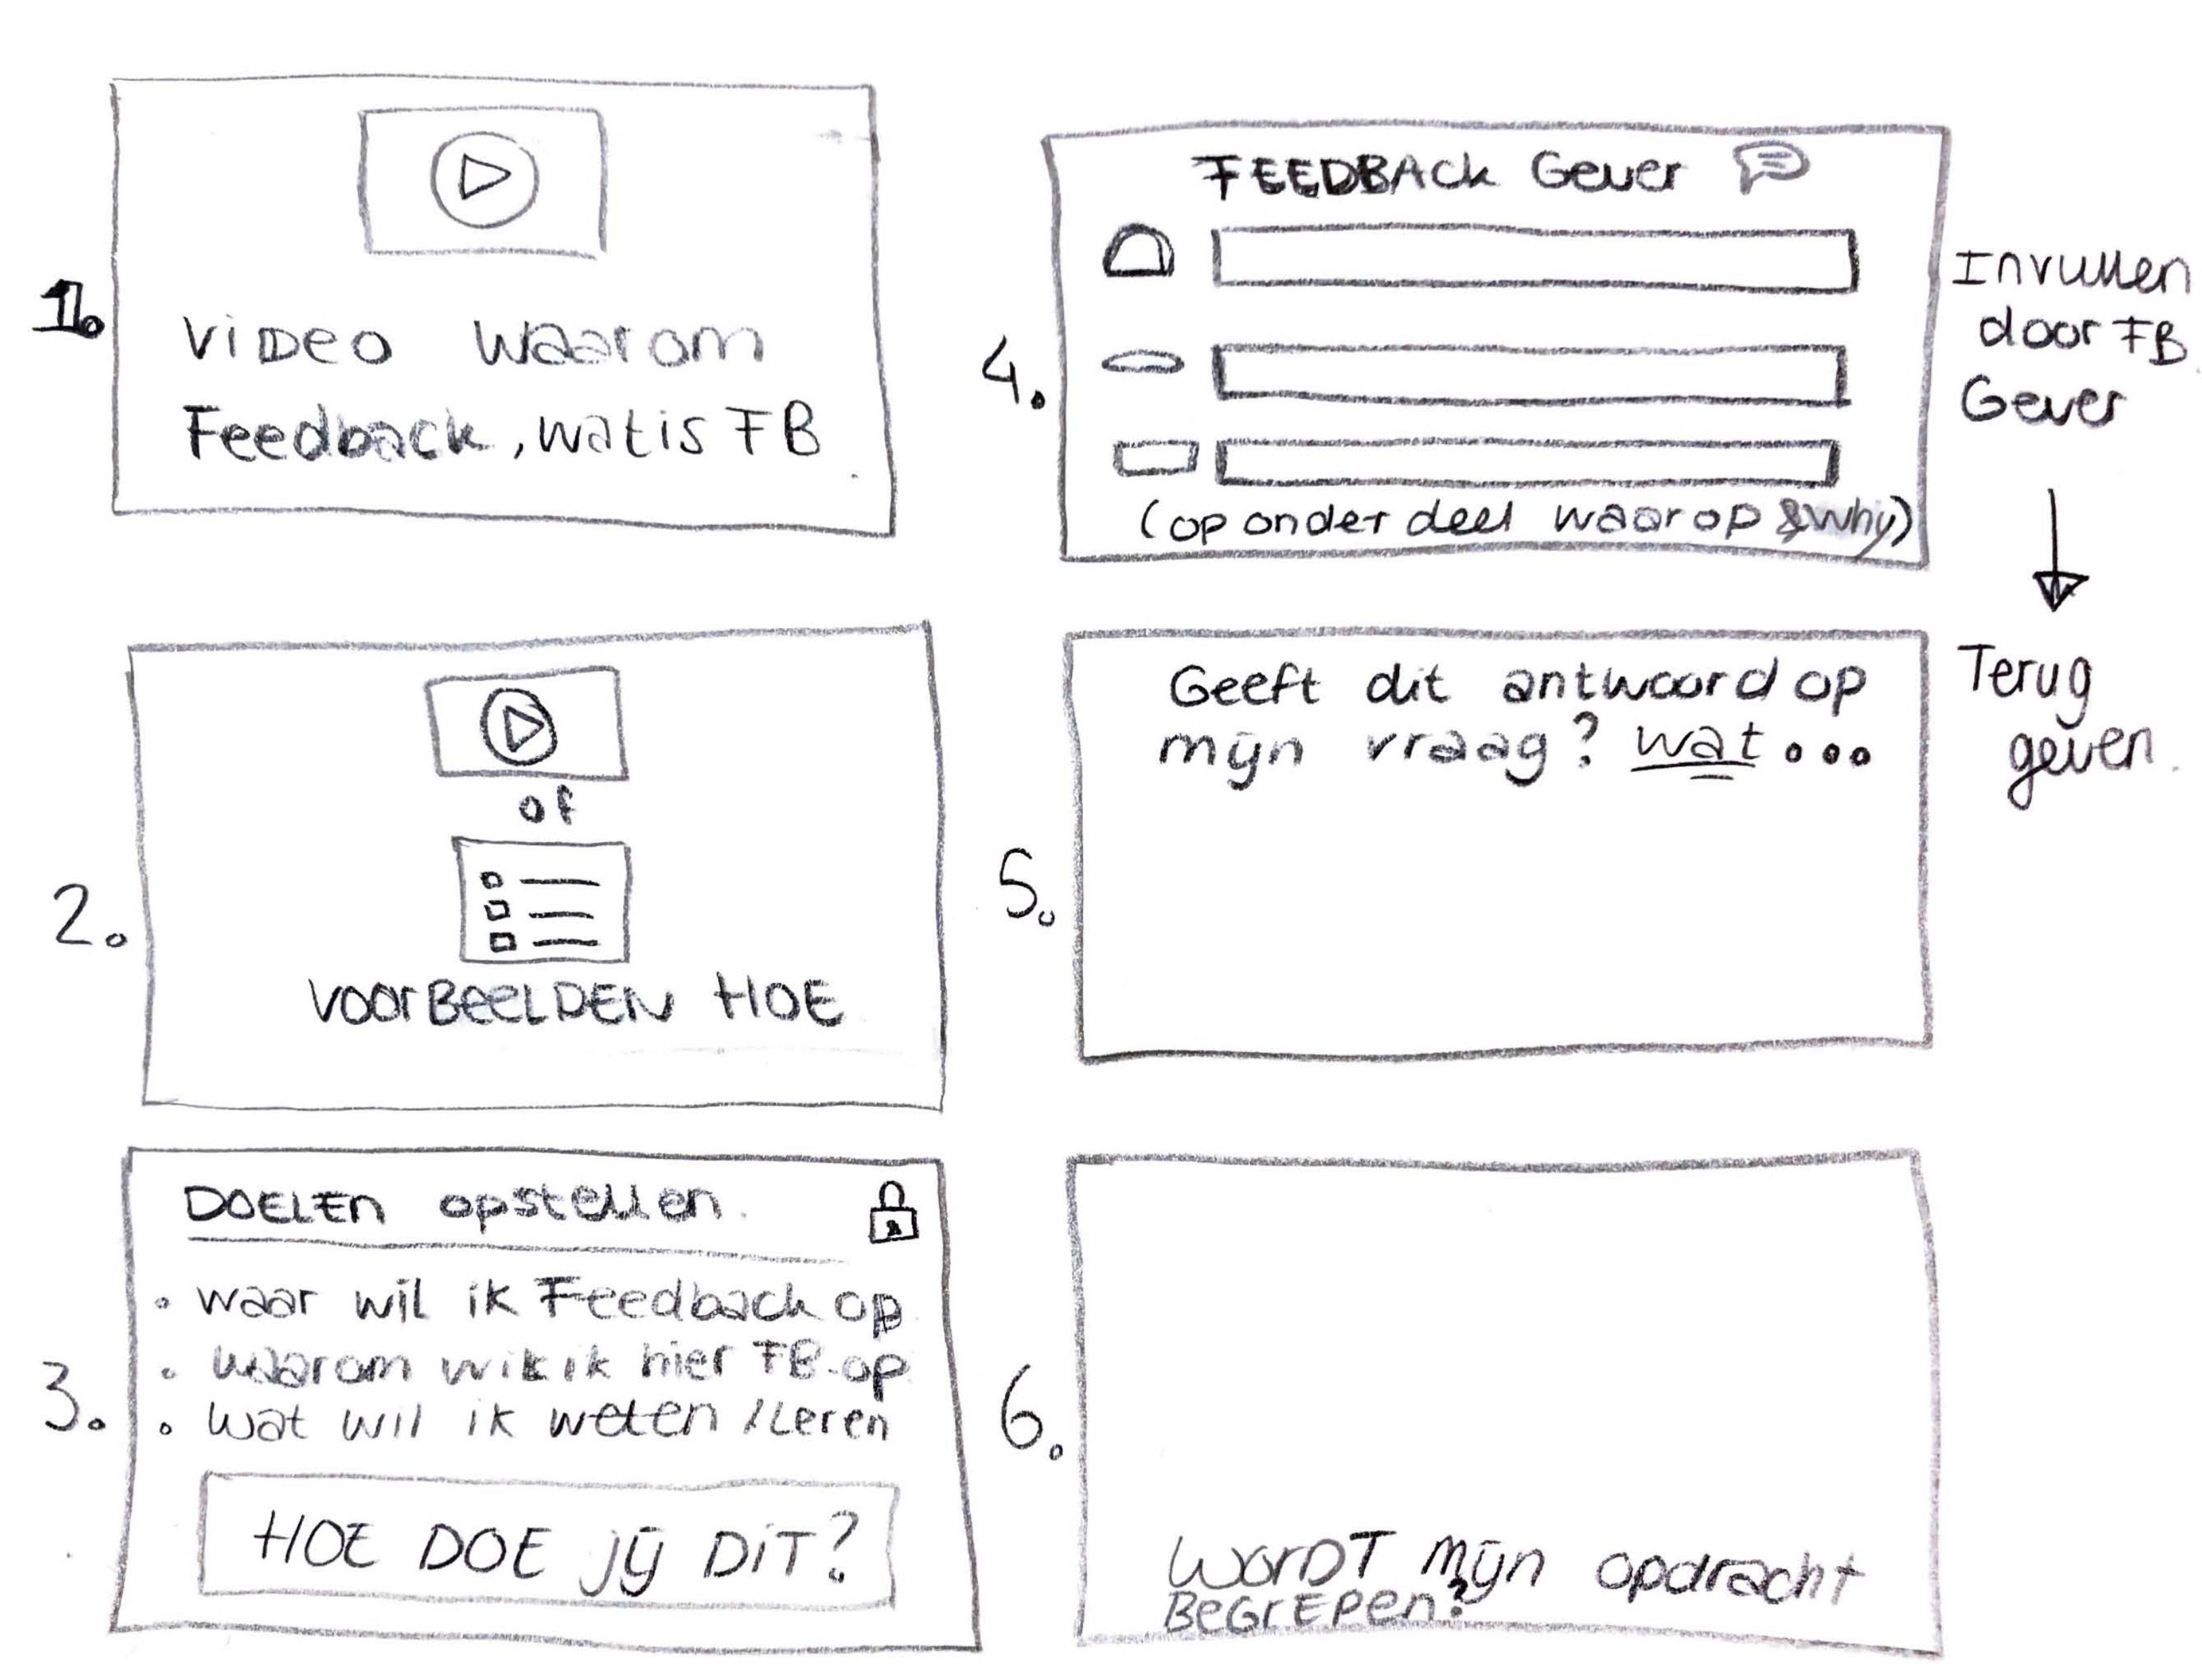 1.
VIDEO waarom
Feedback, wat is FB
2.
of
VOORBEELDEN HOE
3.
DOELEN opstellen.
• waar wil ik Feedback op
• waarom wik ik hier FB op
• wat wil ik weten / Leren
HOE DOE JIJ DIT?
4.
FEEDBACK Gever
(op onderdeel waarop & why)
Invullen
door FB
Gever
5.
Geeft dit antwoord op
mijn vraag? wat...
Terug
geven.
6.
WORDT mijn opdracht
BEGREPEN?